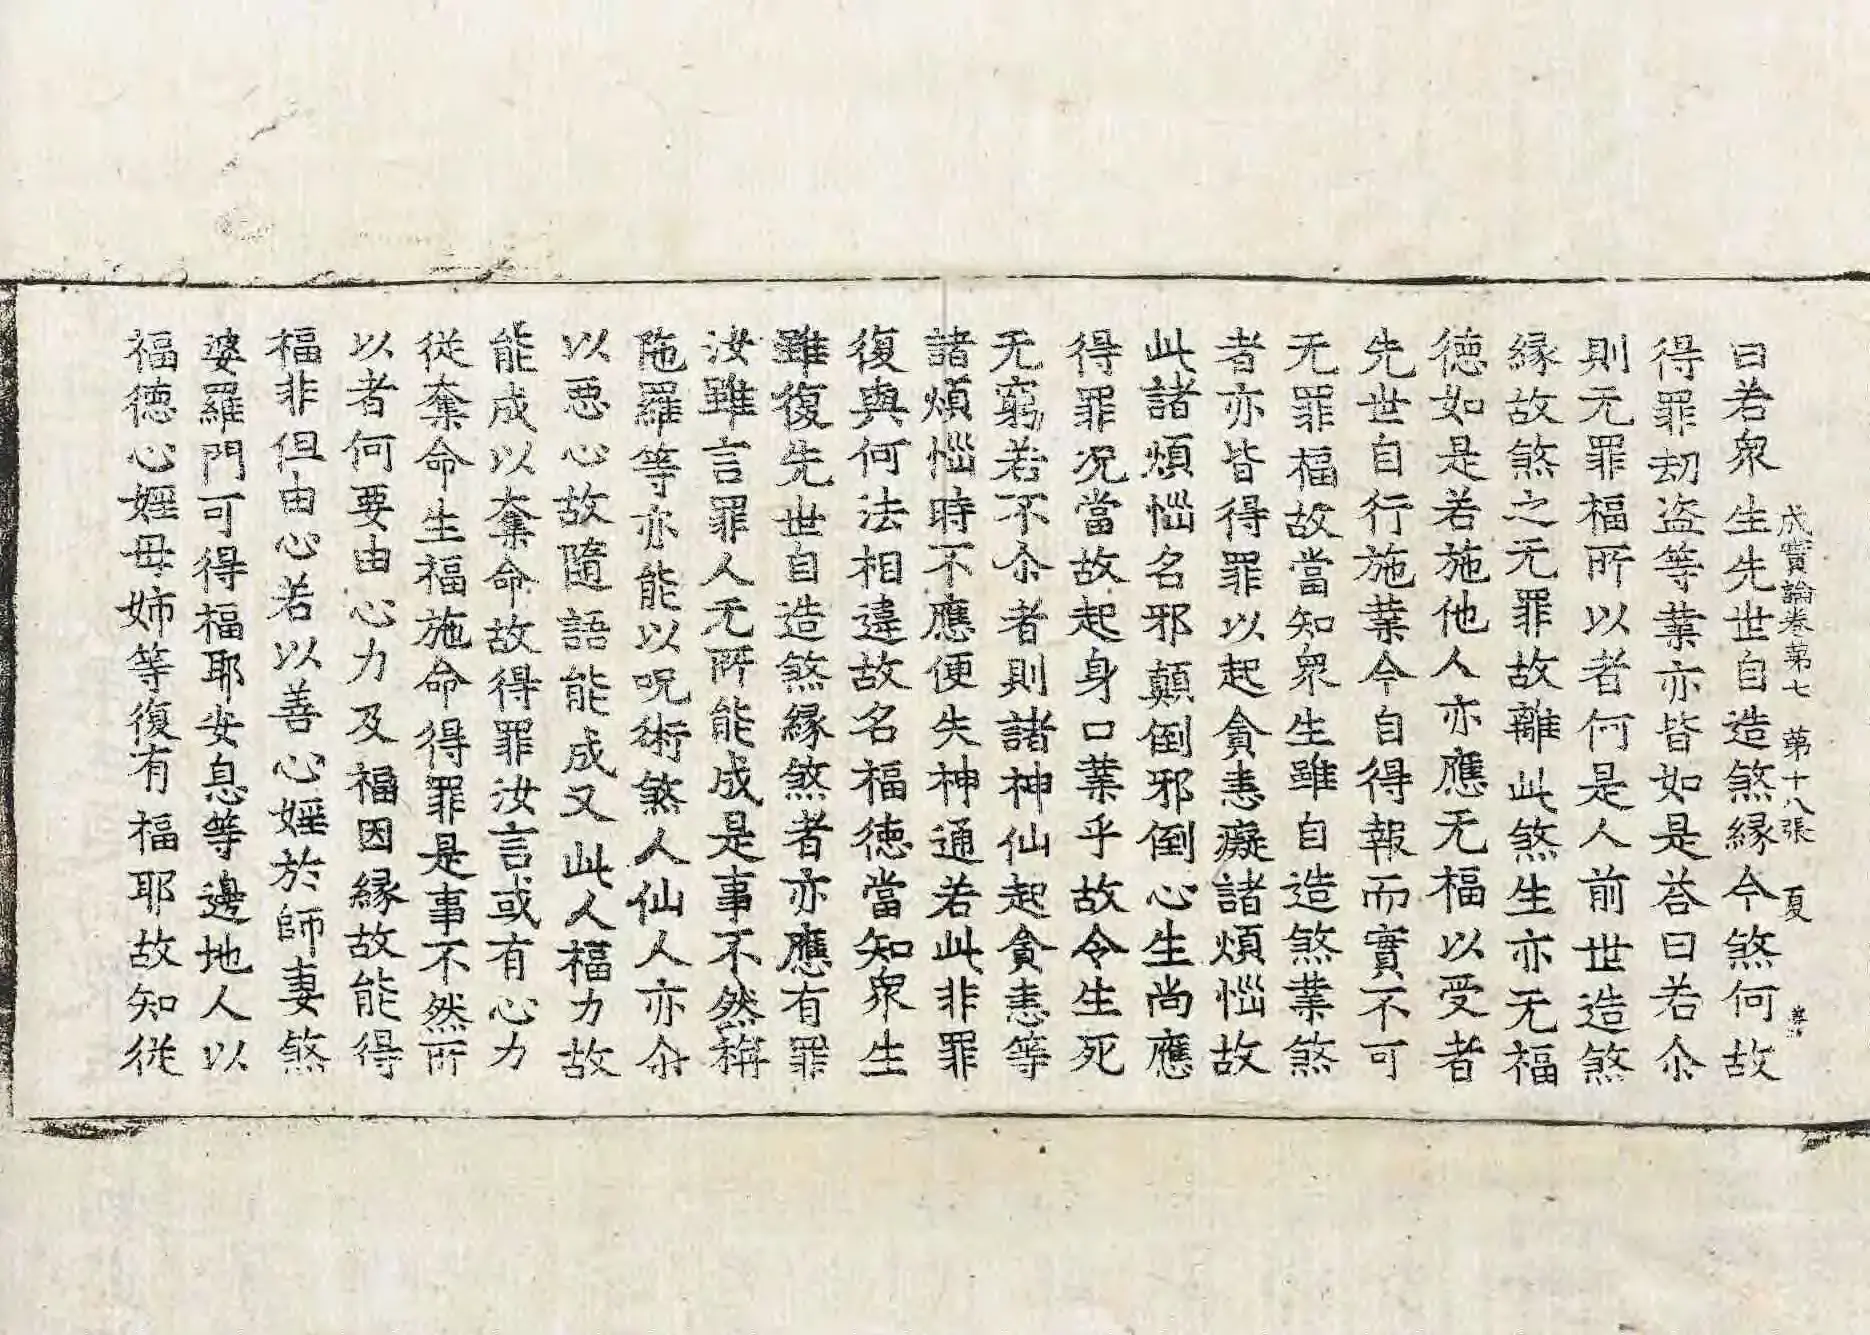 成實論卷第七 第十八張 夏
曰若衆生先世自造煞緣今煞何故
得罪劫盜等業亦皆如是荅曰若尒
則无罪福所以者何是人前世造煞
緣故煞之无罪故離此煞生亦无福
德如是若施他人亦應无福以受者
先世自行施業今自得報而實不可
无罪福故當知衆生雖自造煞業煞
者亦皆得罪以起貪恚癡諸煩惱故
此諸煩惱名邪顛倒邪倒心生尚應
得罪况當故起身口業乎故令生死
无窮若不尒者則諸神仙起貪恚等
諸煩惱時不應便失神通若此非罪
復與何法相違故名福德當知衆生
雖復先世自造煞緣煞者亦應有罪
汝雖言罪人无所能成是事不然栴
陁羅等亦能以呪術煞人仙人亦尒
以惡心故隨語能成又此人福力故
能成以奪命故得罪汝言或有心力
從奪命生福施命得罪是事不然所
以者何要由心力及福因緣故能得
福非但由心若以善心婬於師妻煞
婆羅門可得福耶安息等邊地人以
福德心婬母姊等復有福耶故知從